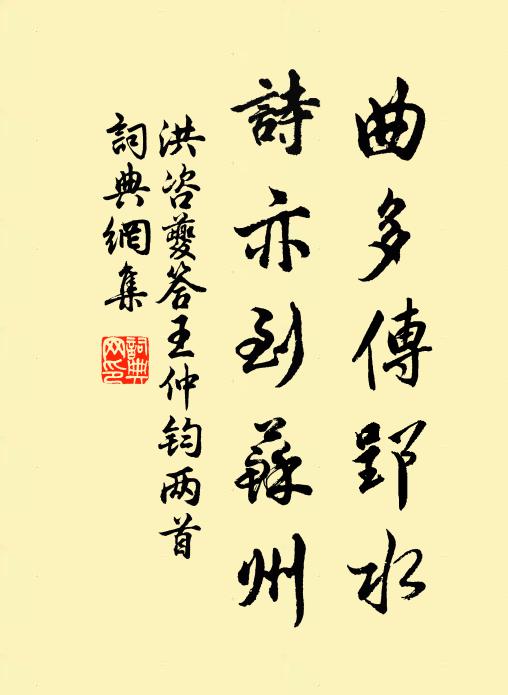 曲多傳郢水
詩亦到蘇州
洪咨夔答王仲鈞两首
詞典網集
詞典网印